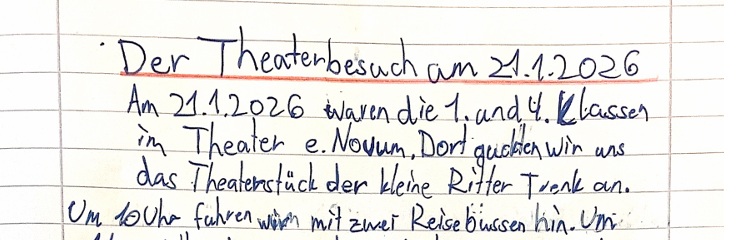 Der Theaterbesuch am 21.1.2026
Am 21.1.2026 waren die 1. und 4. Klassen
im Theater e. Novum. Dort guckten wir uns
das Theaterstück der kleine Ritter Trenk an.
Um 10 Uhr fuhren wir mit zwei Reisebussen hin. Um